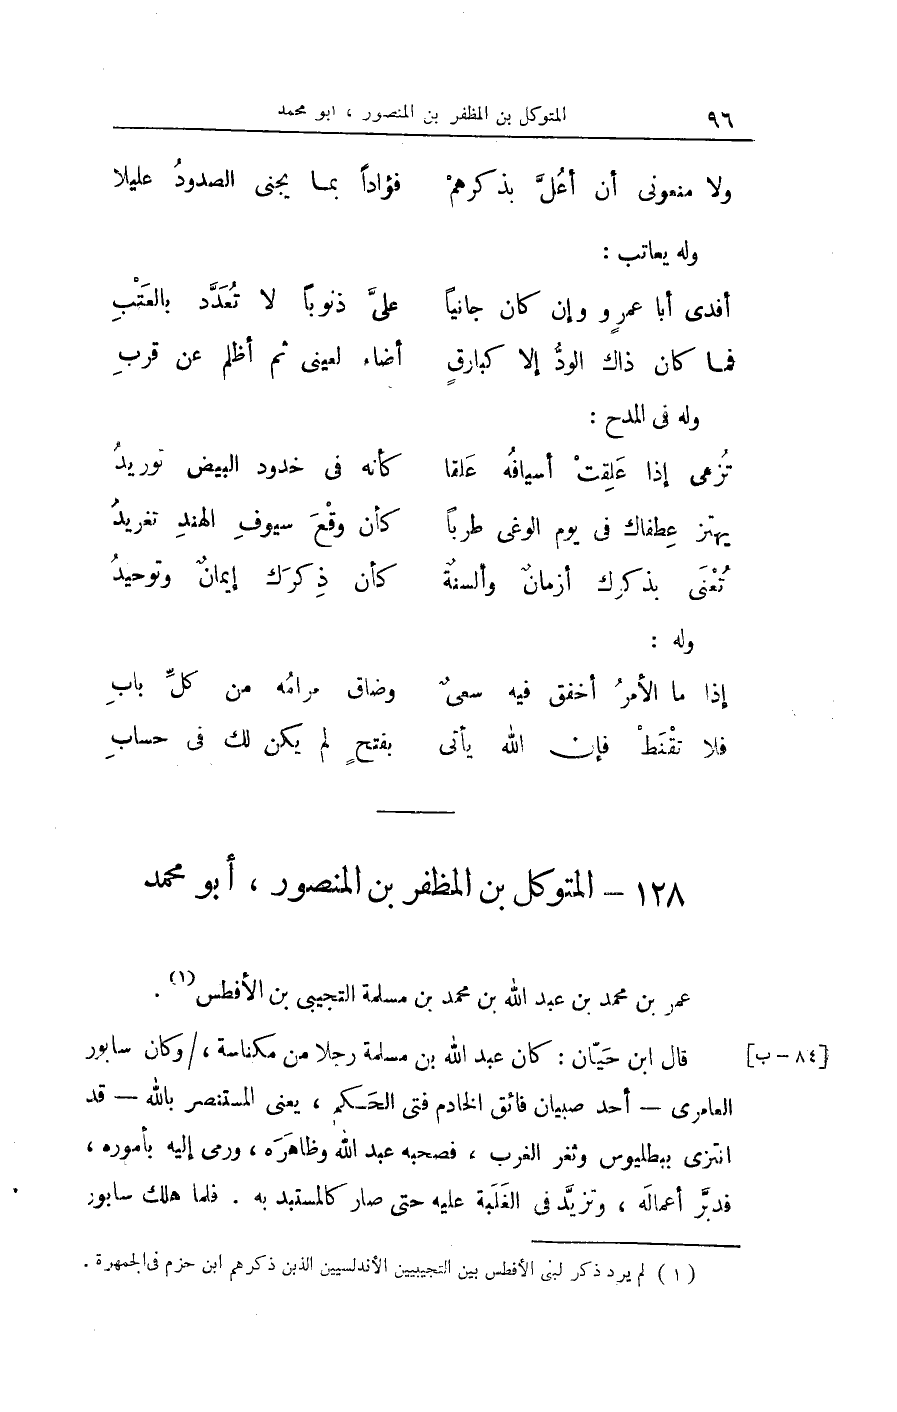 ٩٦ المتوكل بن المظفر بن المنصور ، ابو محمد
ولا منعونى أن أعُلَّ بذكرهمْ فؤاداً بمـا يجنى الصدودُ عليلا
وله يعاتب :
أفدى أبا عمرٍو وإن كان جانياً علىَّ ذنوباً لا تُعَدَّد بالعَتْبِ
فمـا كان ذاك الودُّ إلا كبارقٍ أضاء لعينى ثم أظلم عن قربِ
وله فى المدح :
تُزهى إذا عَلِقتْ أسيافُه عَلقا كأنه فى خدود البيض توريدُ
يهتز عِطفاك فى يوم الوغى طرباً كأن وقْعَ سيوفِ الهندِ تغريدُ
تُعْنَى بذكرك أزمانٌ وألسنةٌ كأن ذِكرَك إيمانٌ وتوحيدُ
وله :
إذا ما الأمرُ أخفق فيه سعىٌ وضاق مرامُه من كلِّ بابِ
فلا تقْنَطْ فإن الله يأتى بفتحٍ لم يكن لك فى حسابِ
١٢٨ – المتوكل بن المظفر بن المنصور ، أبو محمد
عمر بن محمد بن عبد الله بن محمد بن مسلمة التجيبى بن الأفطس(١) .
[٨٤ – ب] قال ابن حَيّان : كان عبد الله بن مسلمة رجلا من مكناسة ،/ وكان سابور
العامرى – أحد صبيان فائق الخادم فتى الحَـكم ، يعنى المستنصر بالله – قد
انتزى ببطليوس وثغر الغرب ، فصحبه عبد الله وظاهَرَه ، ورمى إليه بأموره ،
فدبَّر أعمالَه ، وتزيَّد فى الغَلَبة عليه حتى صار كالمستبد به . فلما هلك سابور
(١) لم يرد ذكر لبنى الأفطس بين التجيبيين الأندلسيين الذين ذكرهم ابن حزم فى الجمهرة .